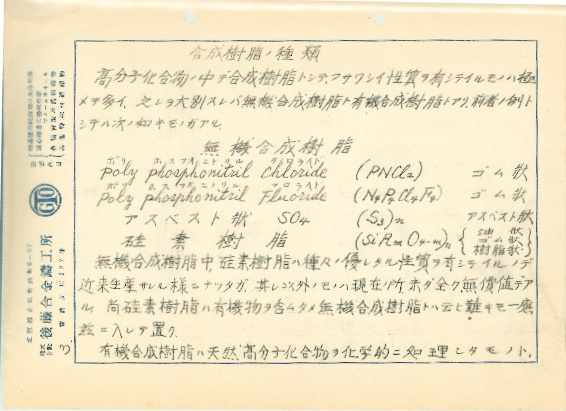 合成樹脂ノ種類
高分子化合物ノ中デ合成樹脂トシテフサワシイ性質ヲ有シテイルモノハ極
メテ多イ、之レヲ大別スレバ無機合成樹脂ト有機合成樹脂トアリ前者ノ例ト
シテハ次ノ如キモノガアル.
無機合成樹脂
ポリ ホスフオニトリル クロライド
Poly phosphonitril Chloride (PNCl2) ゴム状
ポリ ホスフオニトリル フロライド
Poly phosphonitril Fluoride (N4P4Cl2F4) ゴム状
アスベスト状 SO4 (S3)n アスベスト状
硅素樹脂 (SiRmO4-m)n 油状 ゴム状 樹脂状
無機合成樹脂中,硅素樹脂ハ種々ノ優レタル性質ヲ有シテイルノデ
近来生産サレル様ニナツタガ、其レ以外ノモノハ現在ノ所未ダ全ク無價値デア
ル. 尚硅素樹脂ハ有機物ヲ含ムタメ無機合成樹脂トハ云ヒ難キモ一應
茲ニ入レテ置ク.
有機合成樹脂ハ天然高分子化合物ヲ化学的ニ処理シタモノト.
株式会社 後藤合金鑄工所
GIO
3.